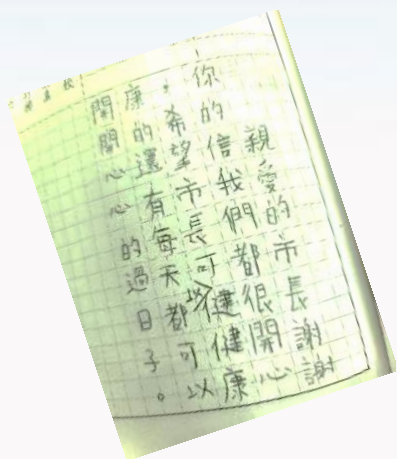 親愛的市長謝謝
你的信我們都很開心
，希望市長可以健健康
康的還有每天都可以
開開心心的過日子。